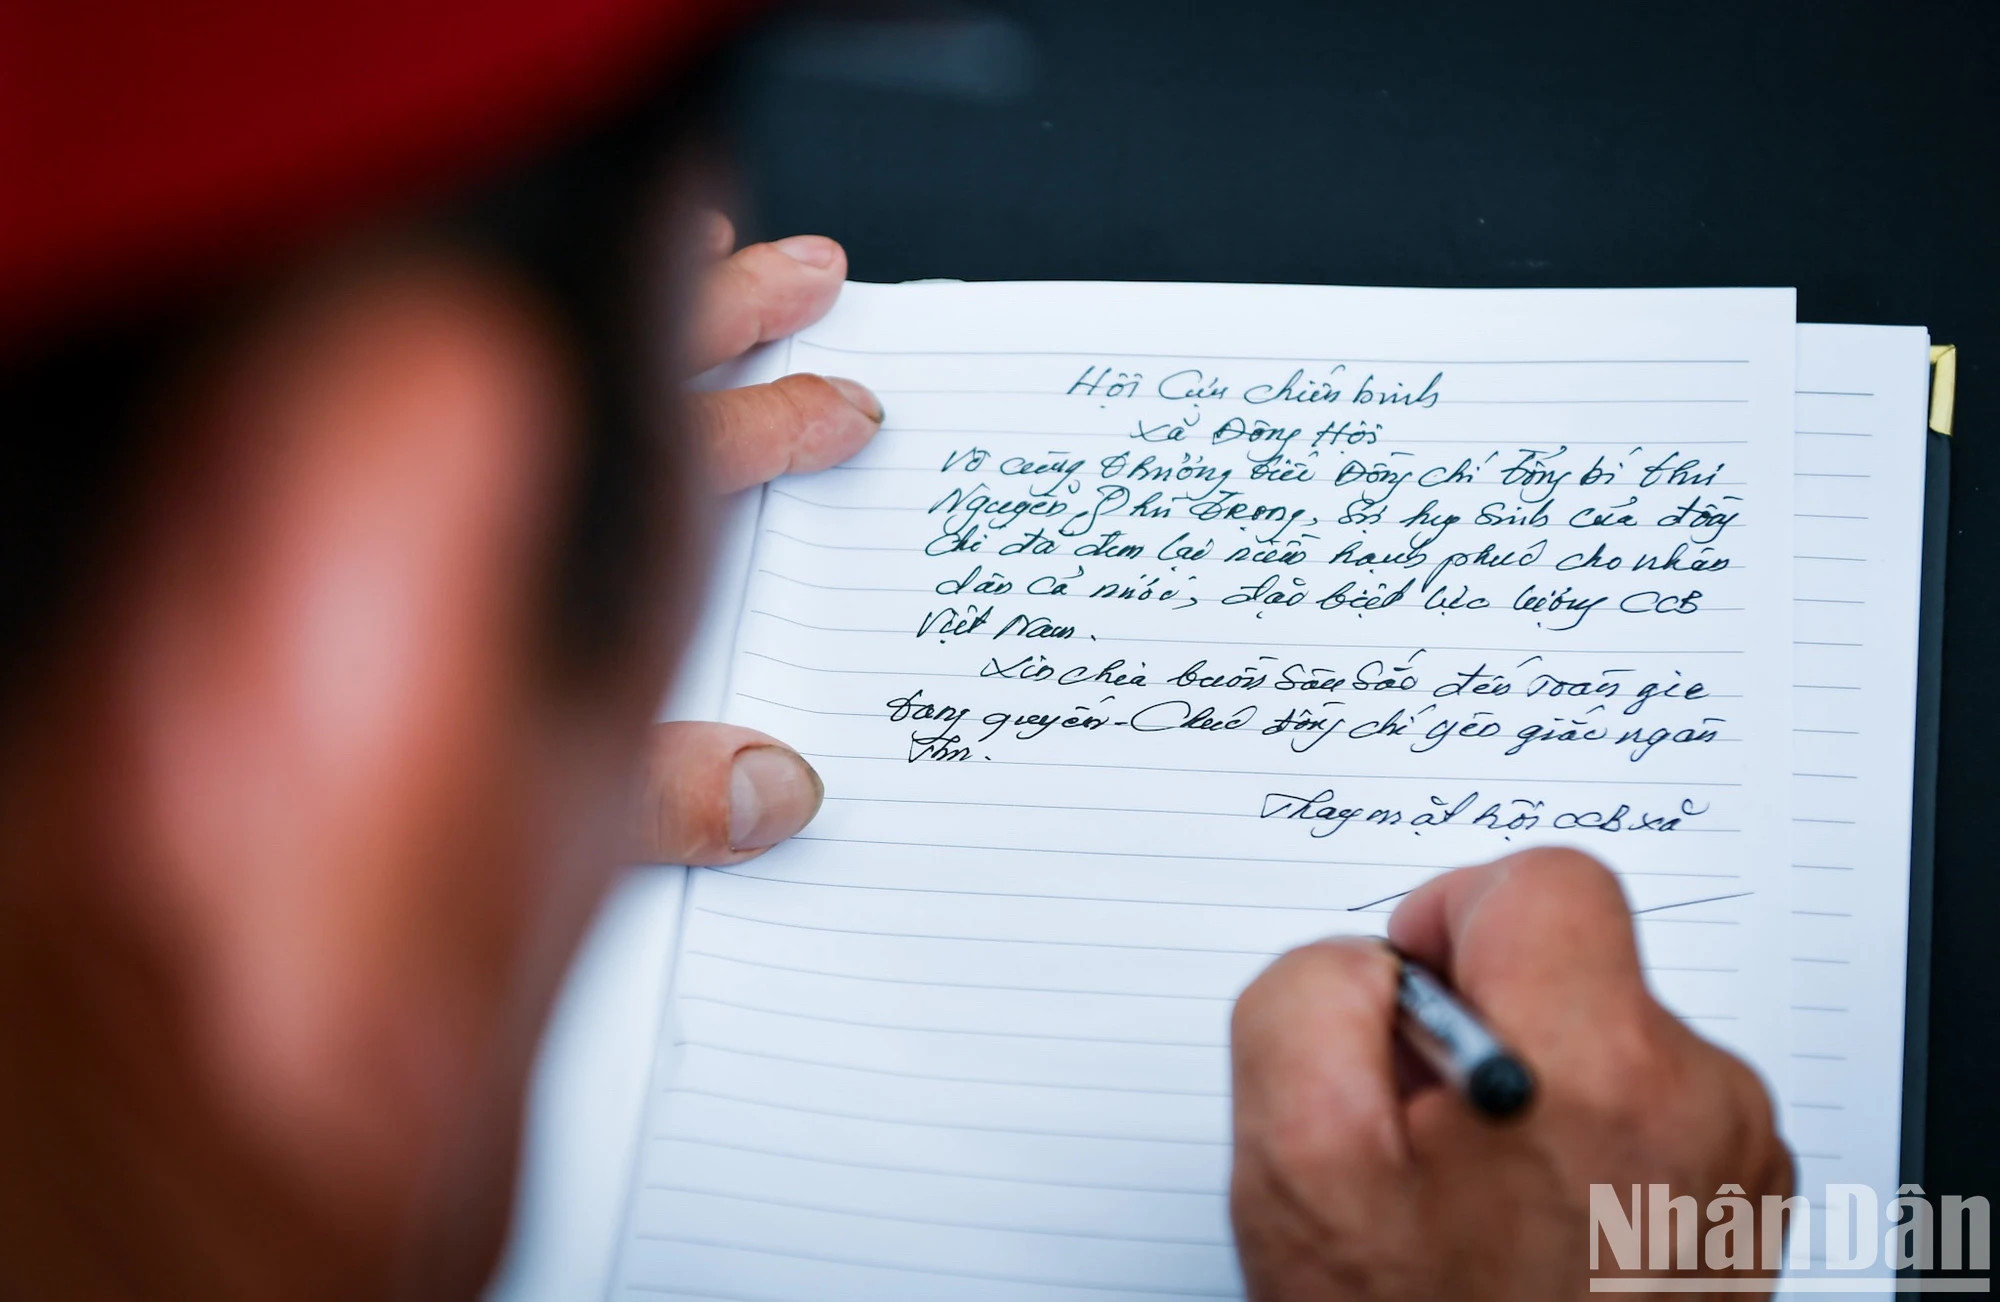 Hội Cựu chiến binh
Xã Đông Hội
Vô cùng thương tiếc Đồng chí Tổng bí thư
Nguyễn Phú Trọng, sự hy sinh của đồng
chí đã đem lại niềm hạnh phúc cho nhân
dân cả nước, đặc biệt lực lượng CCB
Việt Nam.
Xin chia buồn sâu sắc đến toàn gia
tang quyến - Chúc đồng chí yên giấc ngàn
Thu.
Thay mặt hội CCB xã
Nhân Dân